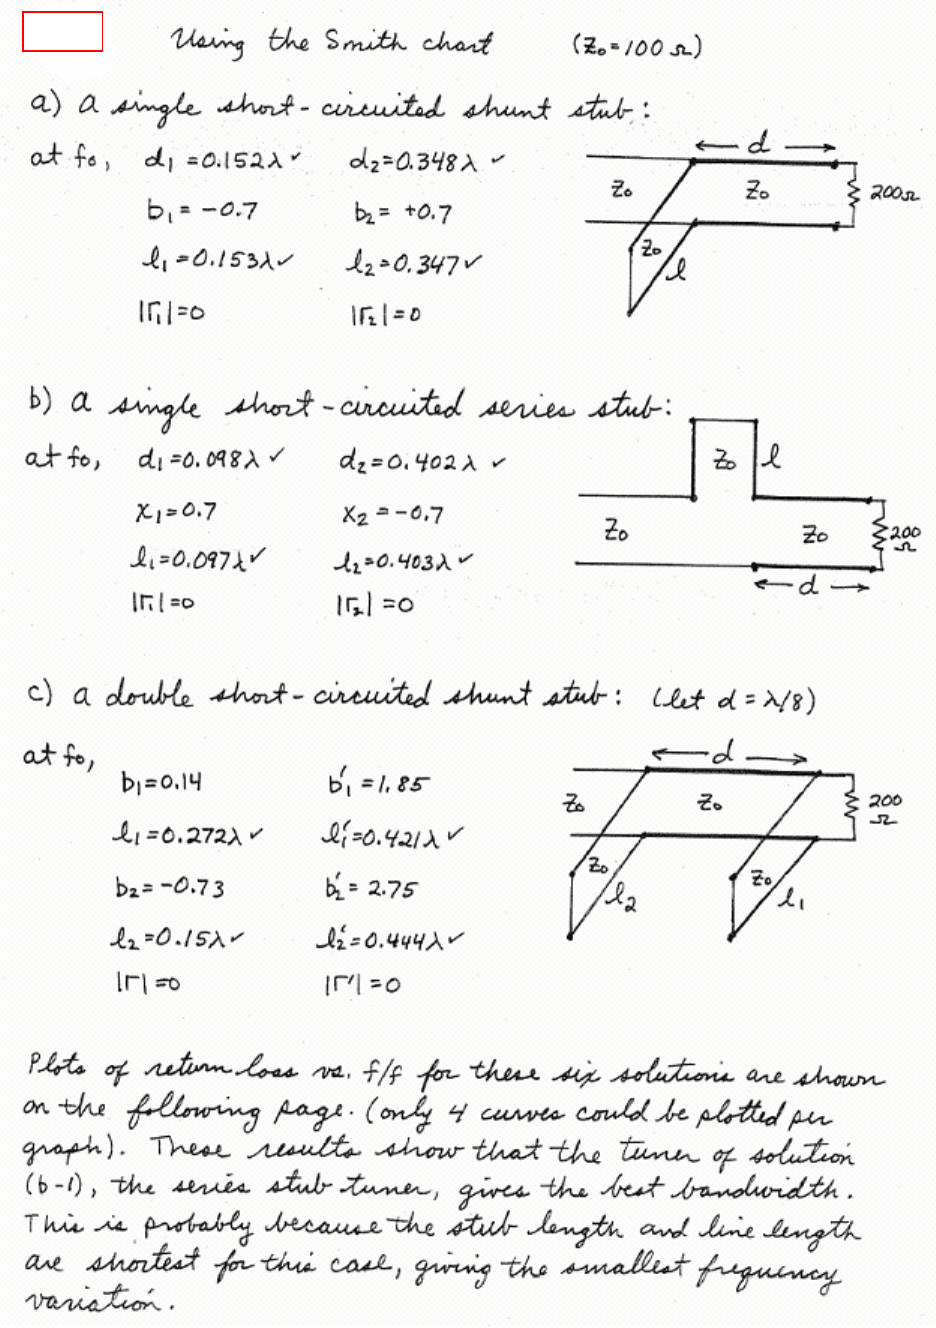 Using the Smith chart (Z₀=100Ω)
a) a single short-circuited shunt stub:
at f₀, d₁ =0.152λ✓ d₂=0.348λ ✓
b₁= -0.7 b₂= +0.7
l₁=0.153λ✓ l₂=0.347✓
|Γ₁|=0 |Γ₂|=0
d
Z₀ Z₀ 200Ω
Z₀ l
b) a single short-circuited series stub:
at f₀, d₁=0.098λ✓ d₂=0.402λ ✓
X₁=0.7 X₂=-0.7
l₁=0.097λ✓ l₂=0.403λ✓
|Γ₁|=0 |Γ₂|=0
Z₀ l
Z₀ Z₀ 200Ω
d
c) a double short-circuited shunt stub: (let d=λ/8)
at f₀,
b₁=0.14 b₁′=1.85
l₁=0.272λ✓ l₁′=0.421λ✓
b₂=-0.73 b₂′= 2.75
l₂=0.15λ✓ l₂′=0.444λ✓
|Γ|=0 |Γ′|=0
d
Z₀ Z₀ 200Ω
Z₀ l₂ Z₀ l₁
Plots of return loss vs. f/f for these six solutions are shown
on the following page. (only 4 curves could be plotted per
graph). These results show that the tuner of solution
(b-1), the series stub tuner, gives the best bandwidth.
This is probably because the stub length and line length
are shortest for this case, giving the smallest frequency
variation.